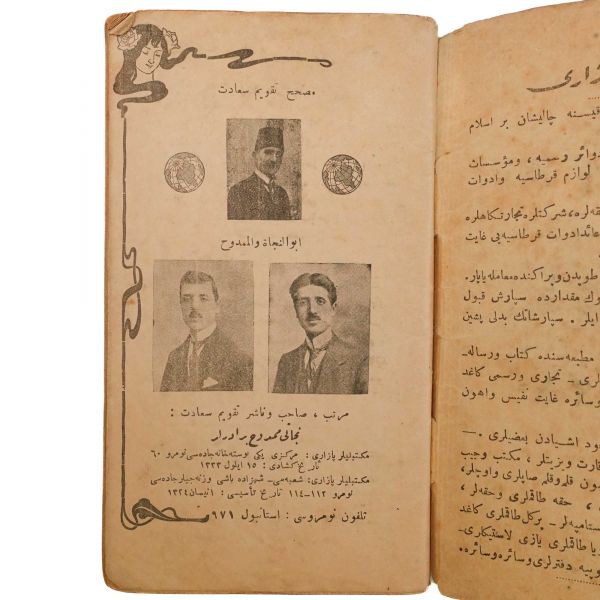 مصحح تقويم سعادت
ابو النجاة والممدوح
مرتب ، صاحب و ناشر تقويم سعادت :
نجاتی ممدوح برادرلر
مكتبليلر پازاری : مركزی يكی پوسته خانه جاده سی نومرو ٦٠
تاريخ كشادی : ١٥ ايلول ١٣٣٣
مكتبليلر پازاری : شعبه سی ـ شهزاده باشی وزنه جيلر جاده سی
نومرو ١١٢ـ١١٤ تاريخ تأسيسی : ١ نيسان ١٣٢٤
تلفون نومروسی : استانبول ٩٧١
زاری
قيسنه چاليشان بر اسلام
دوائر رسميه ، ومؤسسات
لوازم قرطاسيه وادوات
حقه لره، شركتلره تجارتكاهلره
عائد ادوات قرطاسيه يی غايت
طوپدن وپراكنده معامله ياپار.
وك مقدارده سپارش قبول
ايلر . سپارشاتك بدلی پشين
مطبعه سنده كتاب ورساله ـ
لری ـ تجاری ورسمی كاغد
وسائره غايت نفيس واهون
ود اشيادن بعضيلری . —
قارت ويزيتلر ، مكتب وجيب
، حقه طاقملری وحقه لر ،
ستامپه لر ـ پركل طاقملری كاغد
يا طاقملری يازی لاستيكلری ـ
وپيه دفترلری وسائره وسائره.